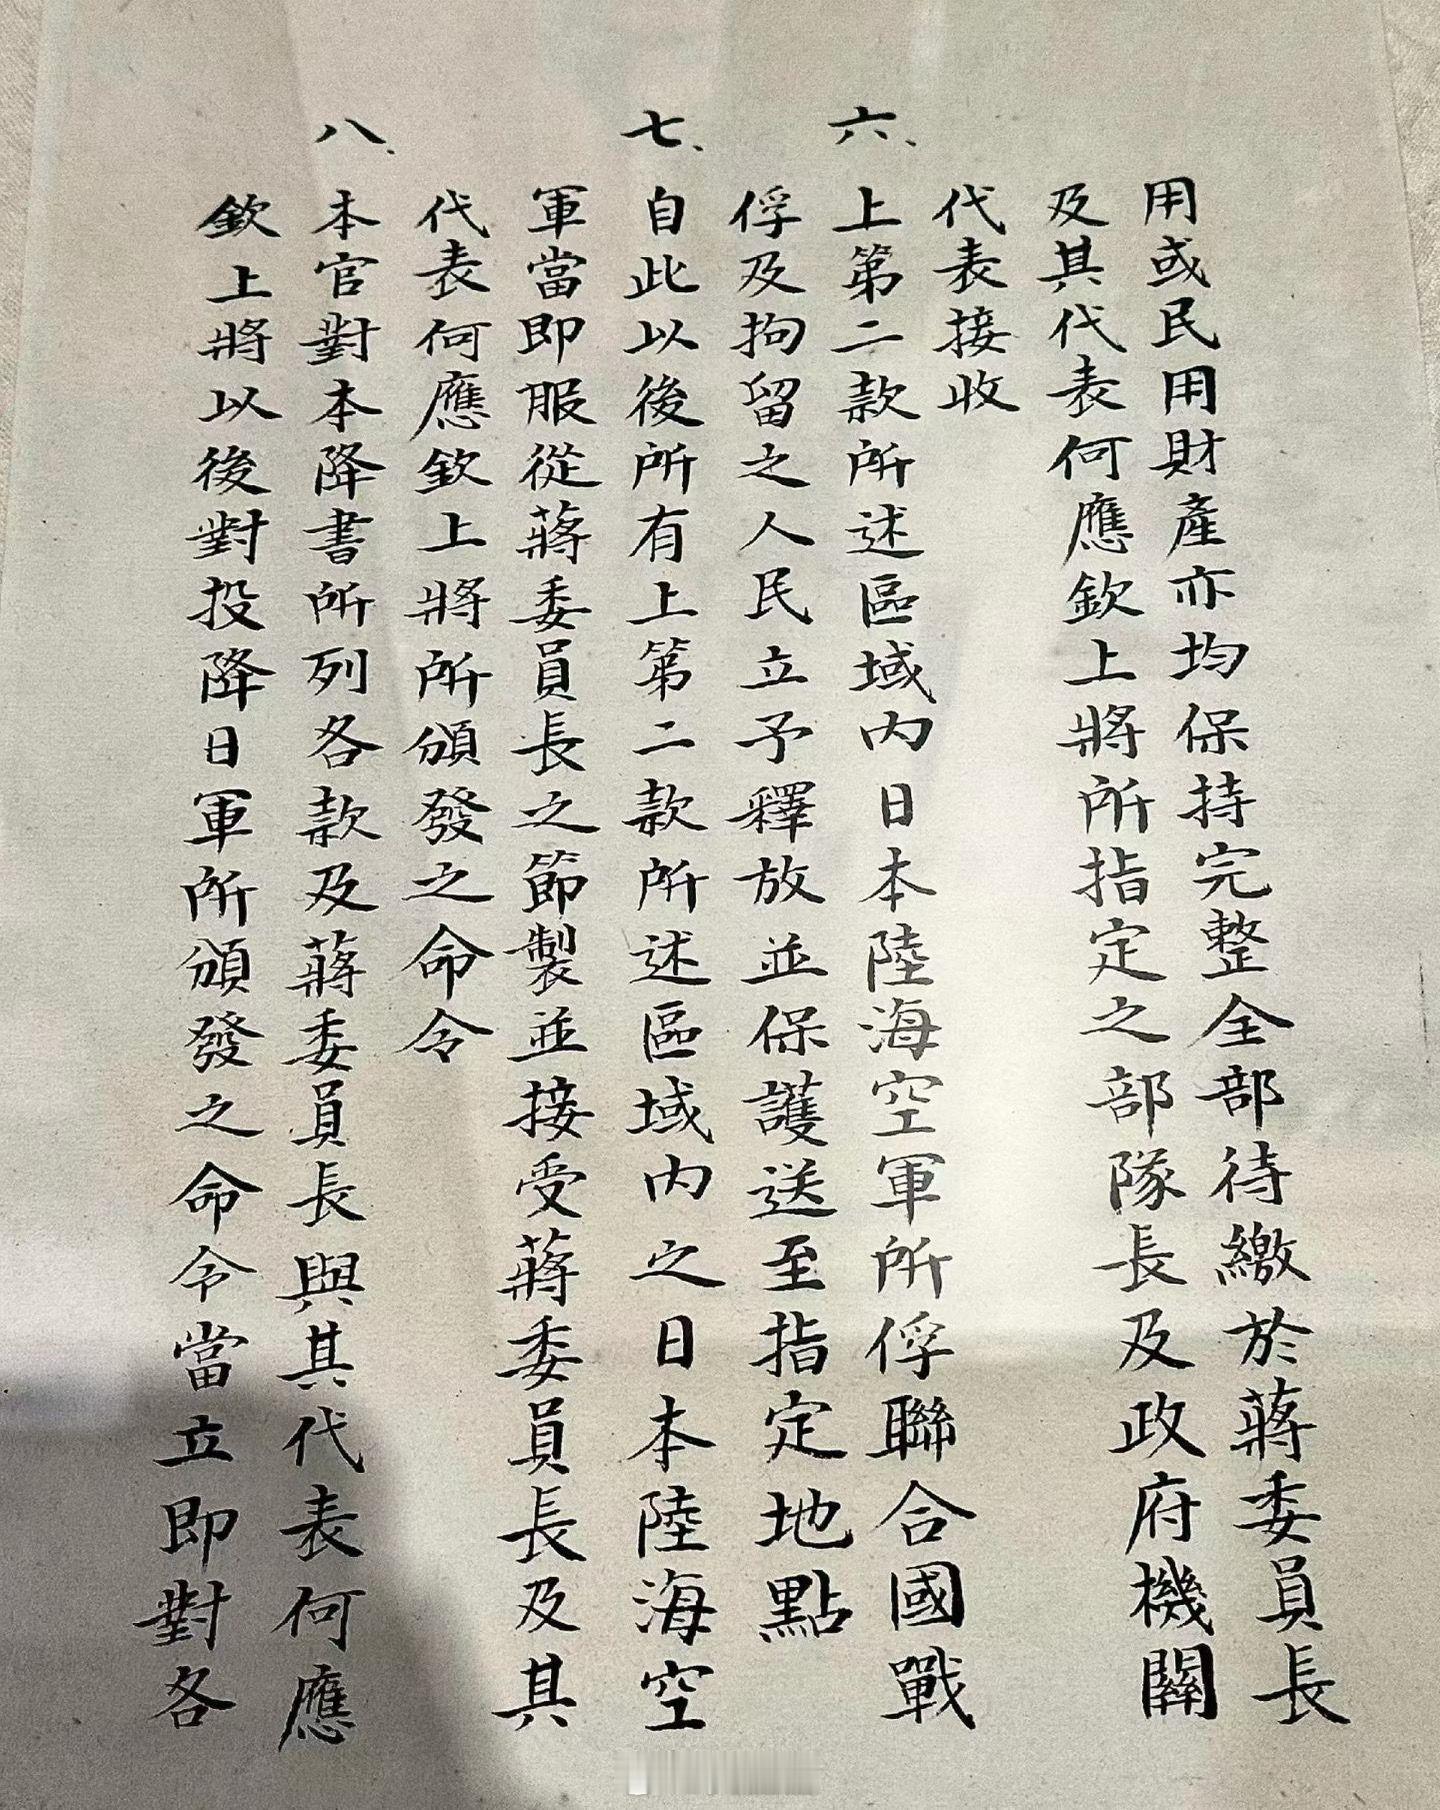 用或民用財產亦均保持完整全部待繳於蔣委員長
及其代表何應欽上將所指定之部隊長及政府機關
代表接收
六、上第二款所述區域內日本陸海空軍所俘聯合國戰
俘及拘留之人民立予釋放並保護送至指定地點
七、自此以後所有上第二款所述區域內之日本陸海空
軍當即服從蔣委員長之節製並接受蔣委員長及其
代表何應欽上將所頒發之命令
八、本官對本降書所列各款及蔣委員長與其代表何應
欽上將以後對投降日軍所頒發之命令當立即對各